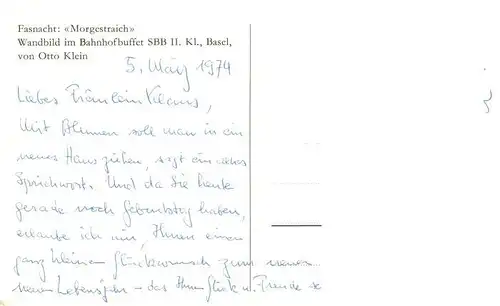 Fasnacht: «Morgestraich»
Wandbild im Bahnhofbuffet SBB II. Kl., Basel,
von Otto Klein
5. März 1974
Liebes Fräulein Klaus,
Mit Blumen soll man in ein
neues Haus ziehen, sagt ein altes
Sprichwort. Und da Sie heute
gerade noch Geburtstag haben,
erlaube ich mir, Ihnen einen
ganz kleinen Glückwunsch zum neuen
neuen Lebensjahr - das Ihnen Glück u. Freude